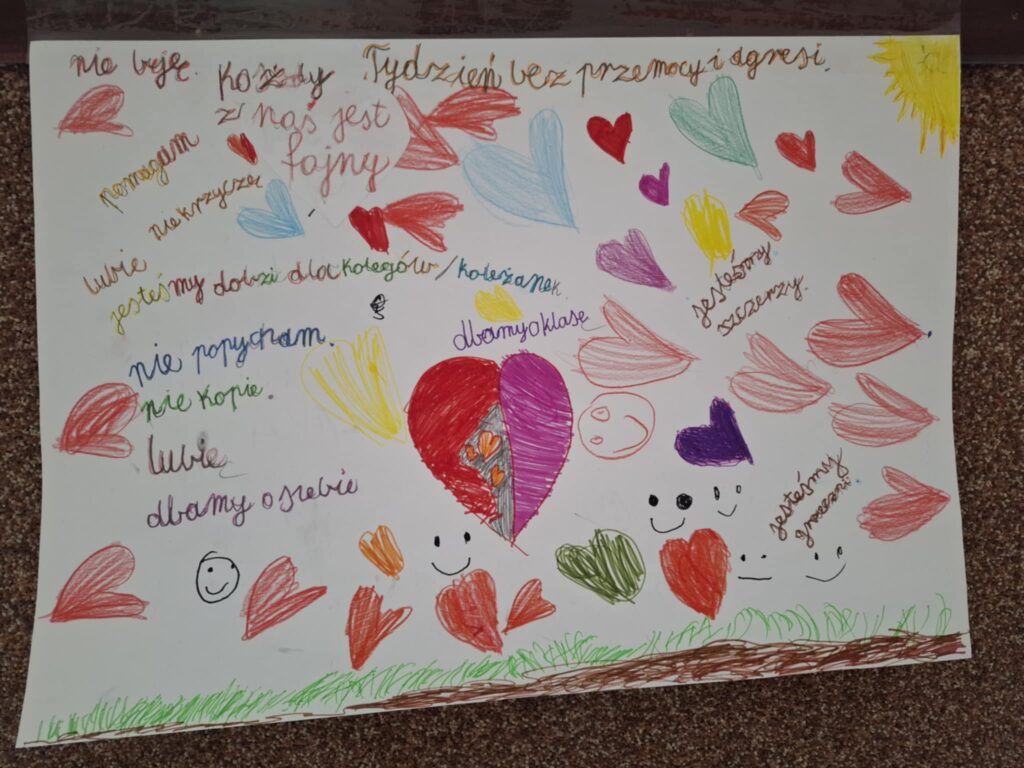 nie biję.
Każdy
z naś jest
fajny
Tydzień bez przemocy i agresi.
pomagam
nie krzyczę
lubię
jesteśmy dobzi dla kolegów/koleżanek.
jesteśmy
szczerzy.
nie popycham.
dbamy o klasę
nie kopie.
lubię
dbamy o siebie
jesteśmy
grzeczni